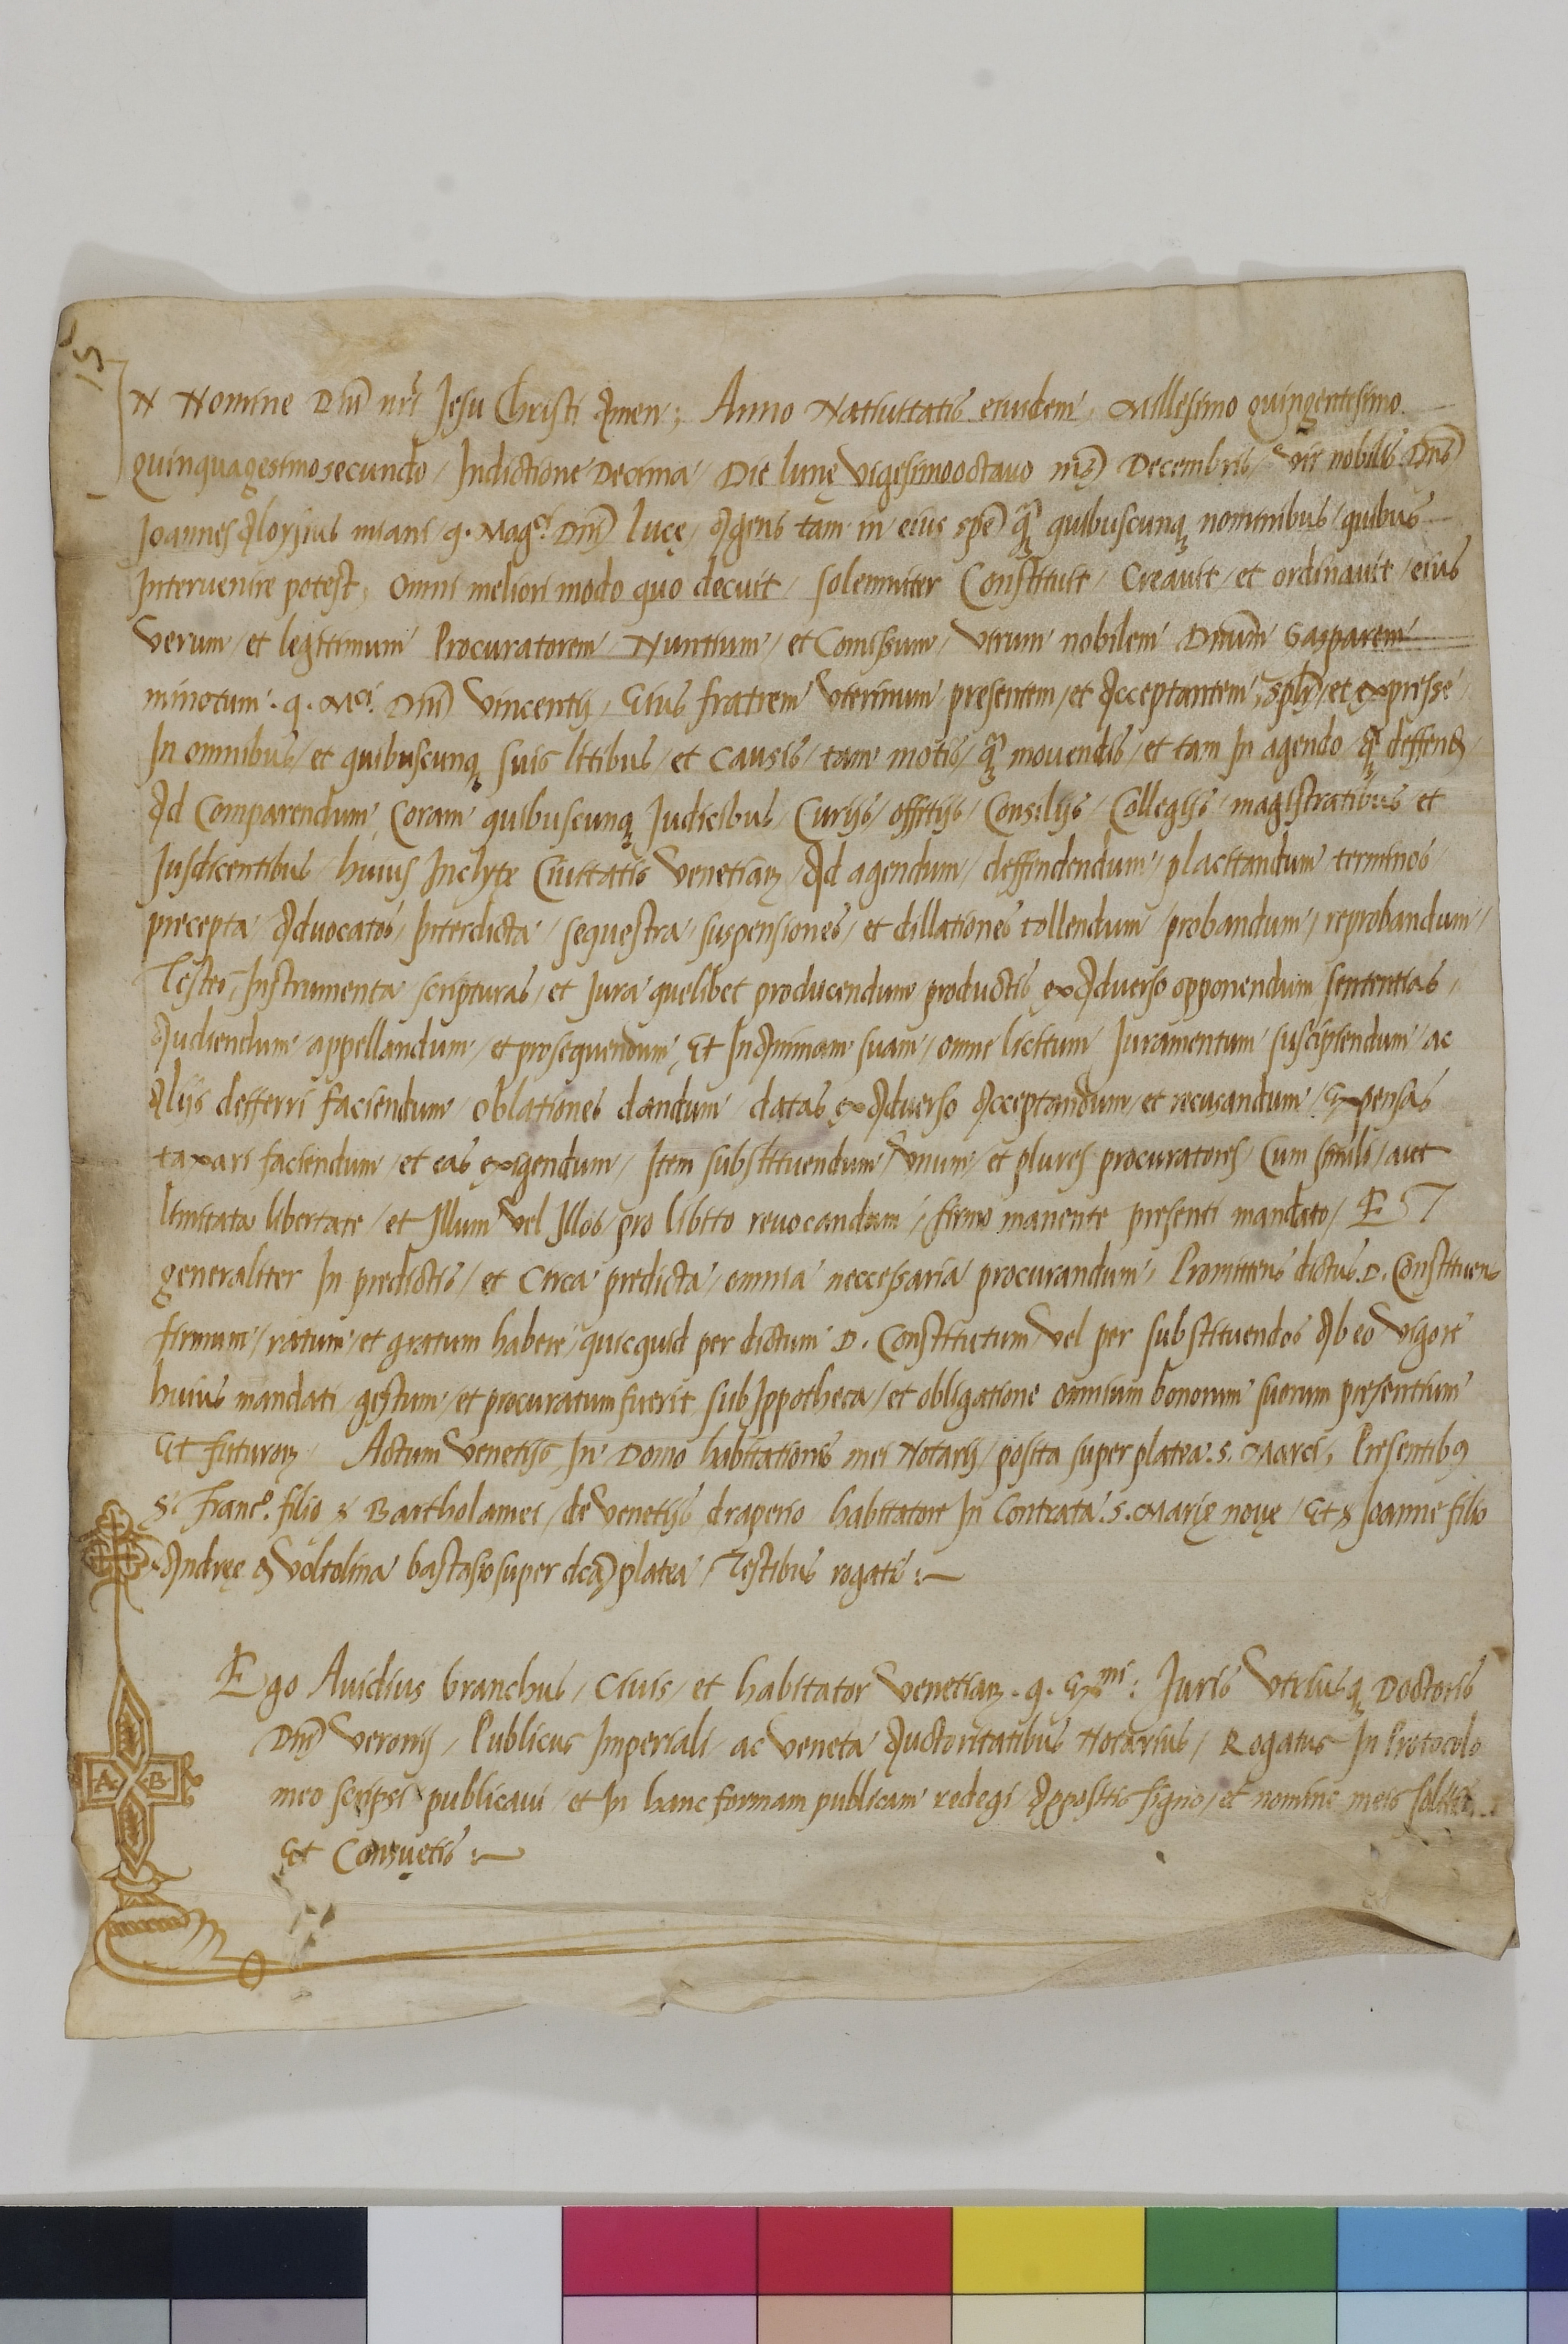 15
IN Nomine Dni nri Jesu Christi Amen; Anno Natiuitatis eiusdem, Millesimo quingentesimo
quinquagesimosecundo / Indictione Decima / Die lunę vigesimooctauo ms Decembris / vir nobilis Dns
Joannes Aloysius miani q. Magci Dni lucę / Agens tam in eius spe q̃ quibuscunq nominibus / quibus
Interuenire potest, omni meliori modo quo decuit / solemniter Constituit / Creauit / et ordinauit / eius
Verum / et legittimum Procuratorem / Nuntium / et Comissum / Virum nobilem Dnum Gasparem
minotum. q. Mci Dni Vincentij / Eius fratrem Vterinum presentem / et Acceptantem, splr / et expresse
In omnibus / et quibuscunq suis litibus / et Causis / tam motis / q̃ mouendis / et tam In agendo q̃ deffend
Ad Comparendum Coram quibuscunq Judicibus / Curijs / offitijs / Consilijs / Collegijs / magistratibus et
Jusdicentibus huius Inclytę Ciuitatis Venetiarȝ / Ad agendum / deffendendum / placitandum terminos
precepta Aduocatos / Interdicta / sequestra / suspensiones / et dillationes tollendum / probandum / reprobandum /
Testes, Instrumenta scripturas / et Jura quelibet producendum productis ex Aduerso opponendum sententias /
Audiendum appellandum / et prosequendum, Et In Animam suam / omne licitum Juramentum suscipiendum / ac
Alijs defferri faciendum / oblationes dandum / datas ex Aduerso Acceptandum / et recusandum / Expensas
taxari faciendum / et eas exigendum / Item substituendum Vnum / et plures procuratores / Cum simili / aut
limitata libertate / et Illum Vel Illos / pro libito reuocandum / firmo manente presenti mandato / ET
generaliter In predictis / et Circa predicta / omnia neccessaria procurandum, Promittens dictus D. Constituens
firmum / ratum / et gratum habere / quicquid per dictum D. Constitutum Vel per substituendos Ab eo Vigore
huius mandati gestum / et procuratum fuerit sub Ippotheca / et obligatione omnium bonorum suorum presentium
Et futurorȝ Actum Venetijs, In Domo habitationis mei Notarij / posita super platea. S. Marci, Presentibꝰ
S. Franco. filio S. Bartholamei / de Venetijs draperio habitatore In Contrata. S. Marię nouę / Et S. Joanne filio
Andreę de Voltolina bastasio super dca platea / Testibus rogatis
Ego Auidius branchus / Ciuis / et habitator Venetiarȝ. q. Exmi: Juris Vtriusq Doctoris
Dni Veronij / Publicus Imperiali / ac Veneta Auctoritatibus Notarius / Rogatus In Protocolo
meo scripsi publicaui et In hanc formam publicam redegi Appositis signo / et nomine meis solitis
Et Consuetis
A B